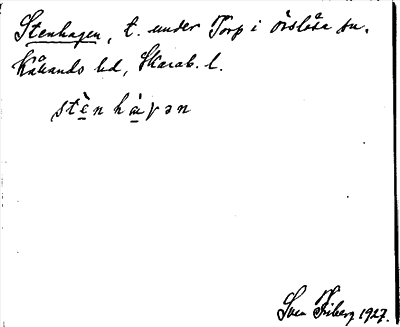 Stenhagen, t. under Torp i Örslösa sn.
Kållands hd, Skarab. l.
stè̠n hà̠γən
Sven Friberg 1927.